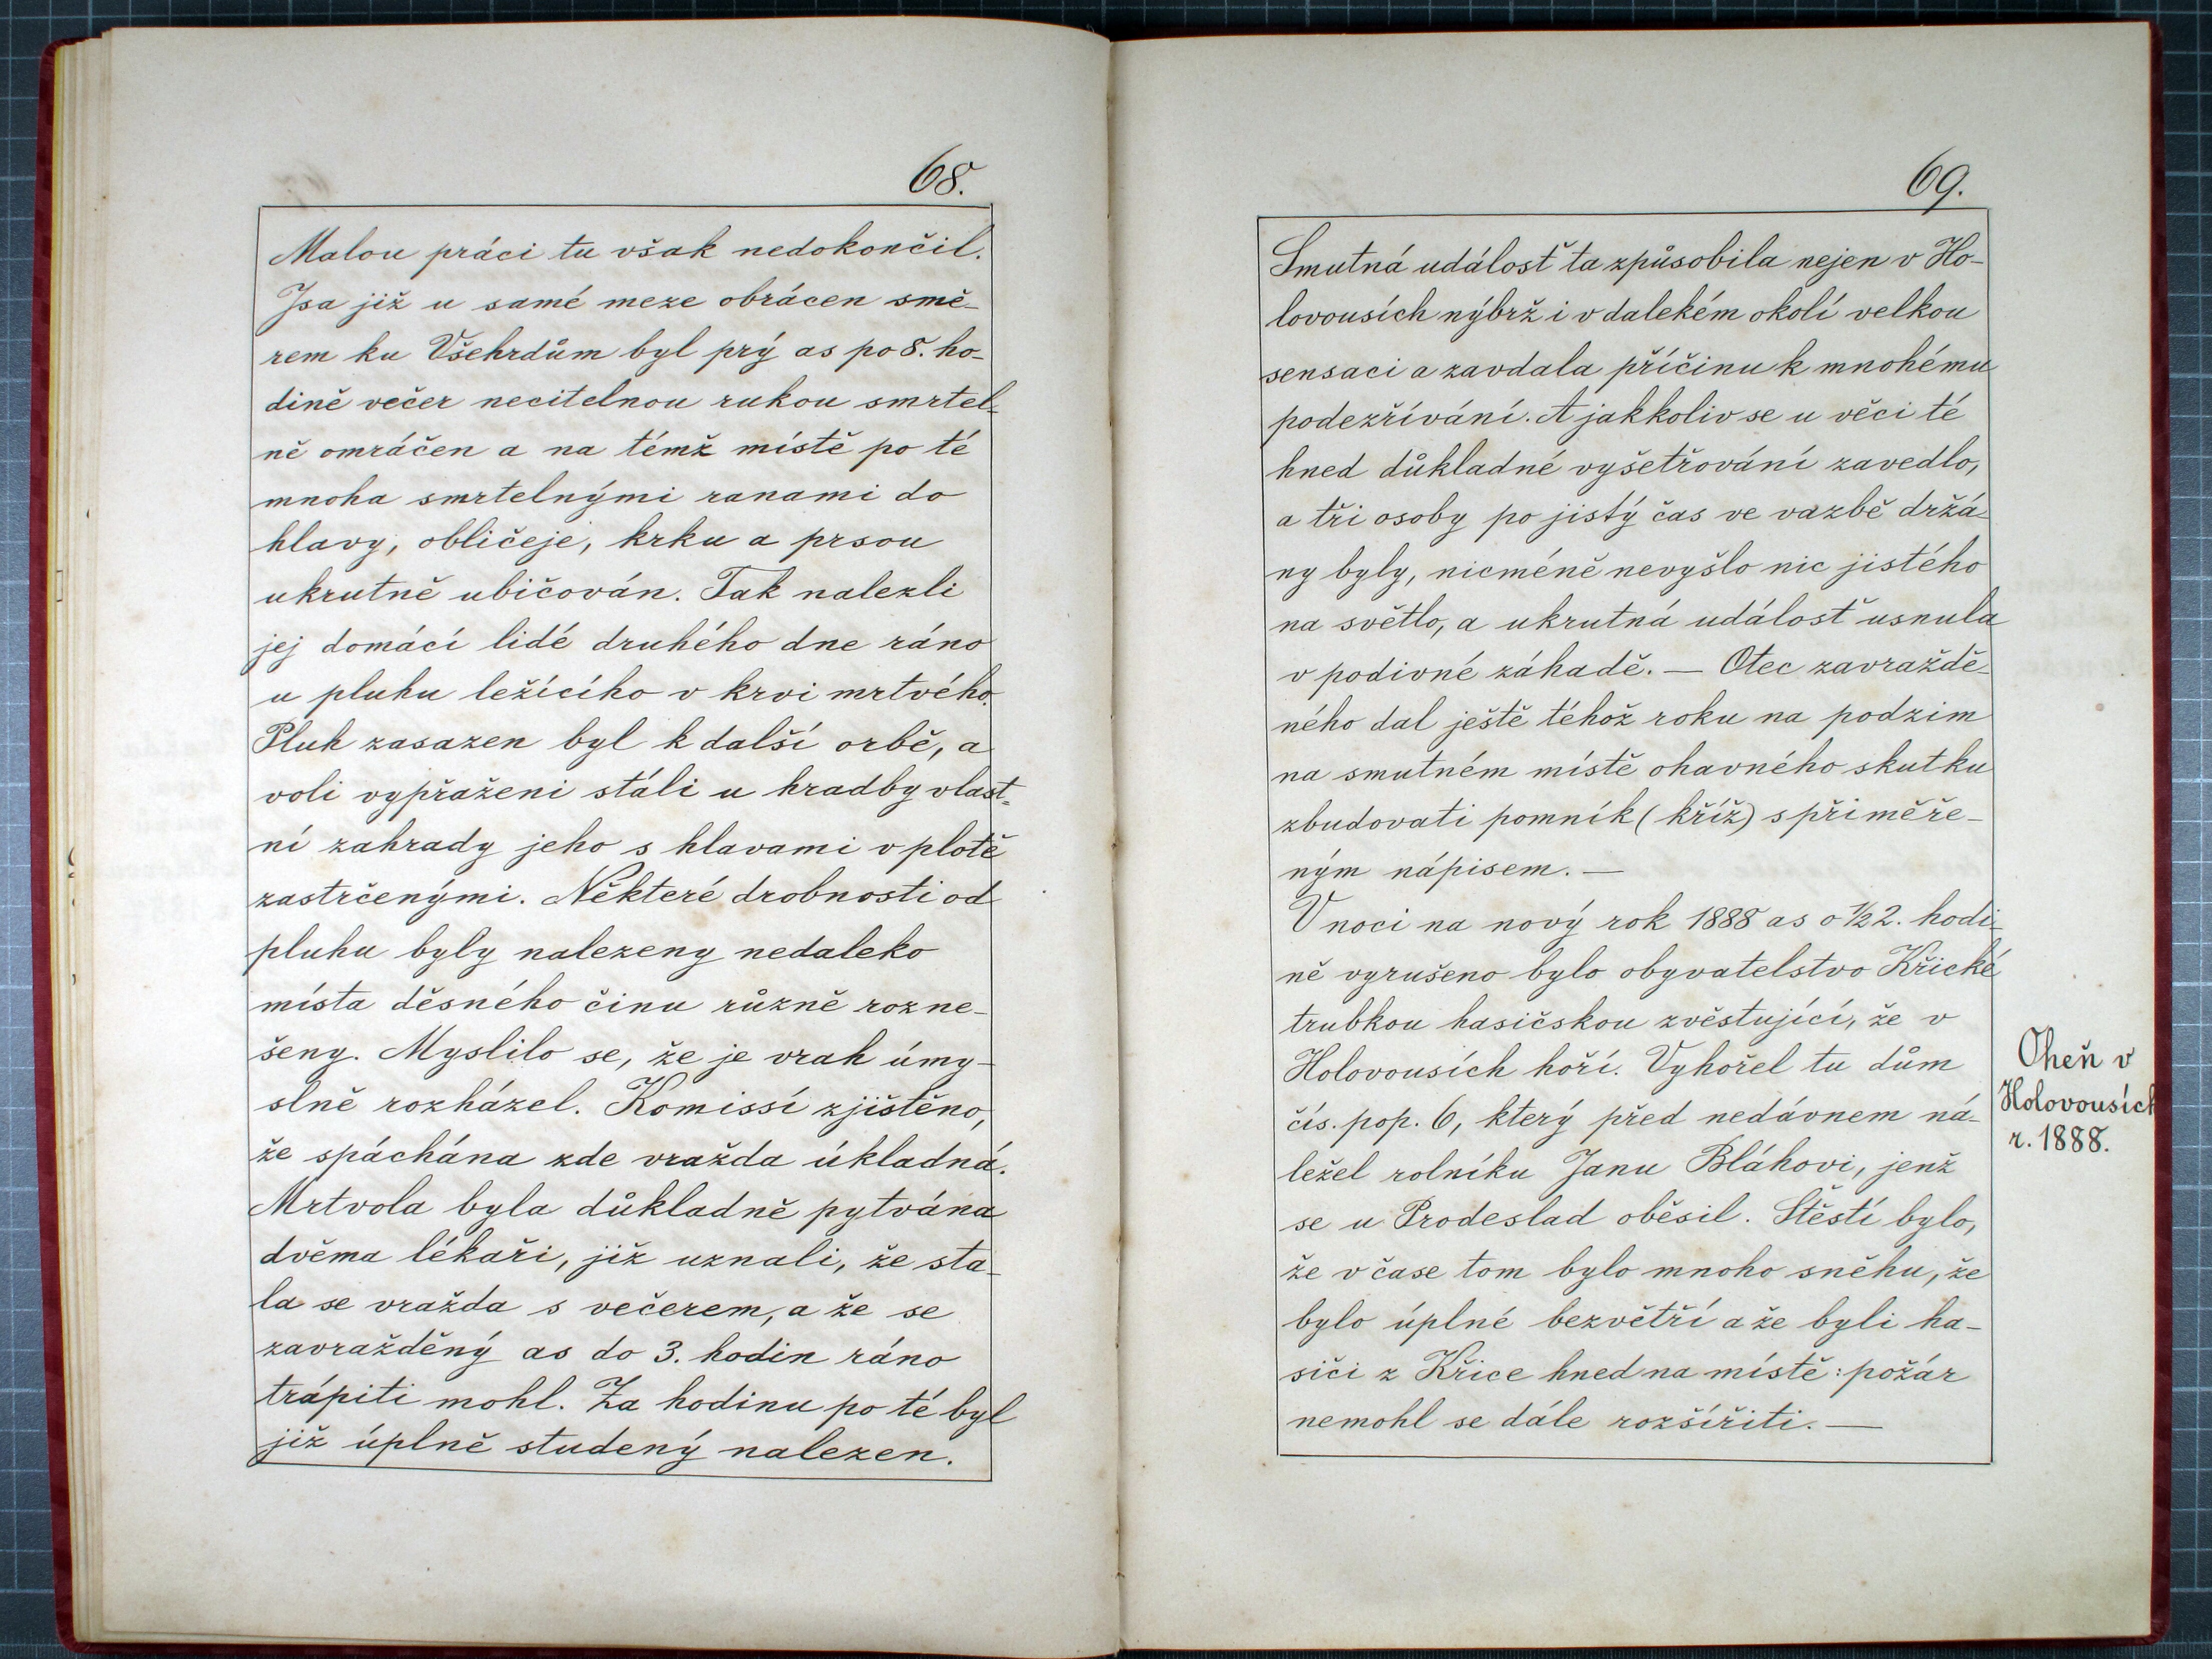 68.
Malou práci tu však nedokončil.
Jsa již u samé meze obrácen smě-
rem ku Všehrdům byl prý as po 8. ho-
dině večer necitelnou rukou smrtel-
ně omráčen a na témž místě po té
mnoha smrtelnými ranami do
hlavy, obličeje, krku a prsou
ukrutně ubičován. Tak nalezli
jej domácí lidé druhého dne ráno
u pluhu ležícího v krvi mrtvého.
Pluh zasazen byl k další orbě, a
voli vypřaženi stáli u hradby vlast-
ní zahrady jeho s hlavami v plotě
zastrčenými. Některé drobnosti od
pluhu byly nalezeny nedaleko
místa děsného činu různě rozne-
šeny. Myslilo se, že je vrah úmy-
slně rozházel. Komissí zjištěno,
že spáchána zde vražda úkladná.
Mrtvola byla důkladně pytvána
dvěma lékaři, již uznali, že sta-
la se vražda s večerem, a že se
zavražděný as do 3. hodin ráno
trápiti mohl. Za hodinu po té byl
již úplně studený nalezen.
69.
Smutná událosť ta způsobila nejen v Ho-
lovousích nýbrž i v dalekém okolí velkou
sensaci a zavdala příčinu k mnohému
podezřívání. A jakkoliv se u věci té
hned důkladné vyšetřování zavedlo,
a tři osoby po jistý čas ve vazbě držá-
ny byly, nicméně nevyšlo nic jistého
na světlo, a ukrutná událosť usnula
v podivné záhadě. — Otec zavraždě-
ného dal ještě téhož roku na podzim
na smutném místě ohavného skutku
zbudovati pomník (kříž) s přiměře-
ným nápisem. —
V noci na nový rok 1888 as o ½ 2. hodi-
ně vyrušeno bylo obyvatelstvo Křické
trubkou hasičskou zvěstující, že v
Holovousích hoří. Vyhořel tu dům
čís. pop. 6, který před nedávnem ná-
ležel rolníku Janu Bláhovi, jenž
se u Prodeslad oběsil. Štěstí bylo,
že v čase tom bylo mnoho sněhu, že
bylo úplné bezvětří a že byli ha-
siči z Křice hned na místě: požár
nemohl se dále rozšířiti. —
Oheň v
Holovousích
r. 1888.